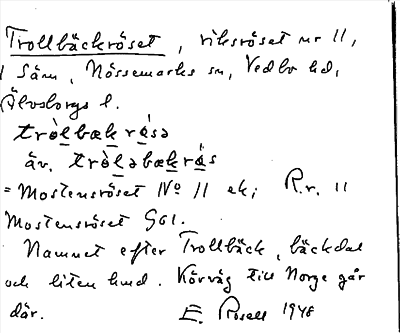 Trollbäckröset, riksröset nr 11,
i Särn, Nössemarks sn, Vedbo hd,
Älvsborgs l.
tròlbækrǻsə
äv. tròləbækrǻs
= Mostensröset No 11 ek; R.r. 11
Mostensröset Ggl.
Namnet efter Trollbäck, bäckdal
och liten hmd. Körväg till Norge går
där. E. Rosell 1948